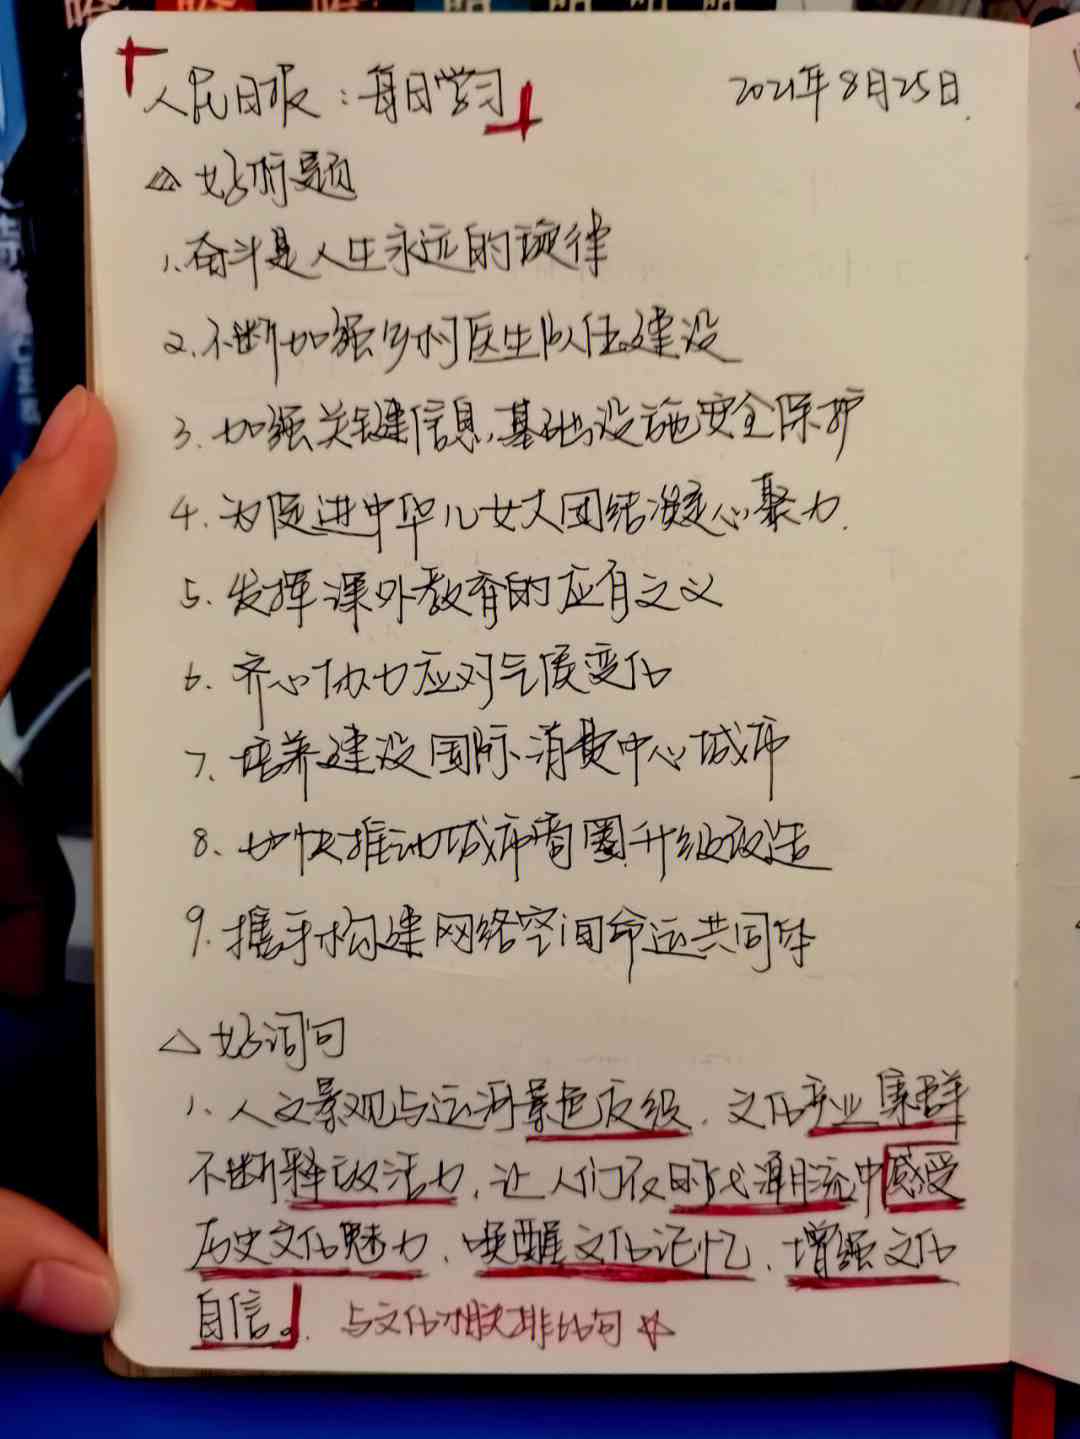 人民日报：每日学习
2021年8月25日.
△好标题
1.奋斗是人生永远的旋律
2.不断加强乡村医生队伍建设
3.加强关键信息基础设施安全保护
4.为促进中华儿女大团结凝心聚力.
5.发挥课外教育的应有之义
6.齐心协力应对气候变化
7.培养建设国际消费中心城市
8.加快推动城市商圈升级改造
9.携手构建网络空间命运共同体
△好词句
1.人文景观与运河景色交织，文化产业集群
不断释放活力，让人们在时代潮流中感受
历史文化魅力，唤醒文化记忆，增强文化
自信。 与文化相关排比句☆